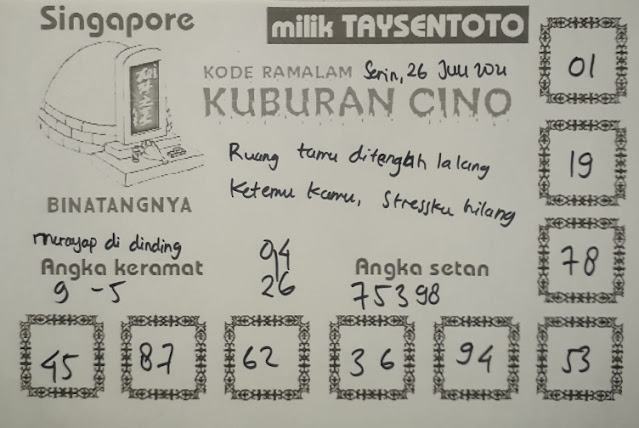 Singapore
milik TAYSENTOTO
KODE RAMALAM Senin, 26 Juli 2021
KUBURAN CINO
Ruang tamu ditengah lalang
Ketemu kamu, Stressku hilang
BINATANGNYA
merayap di dinding
Angka keramat
9 - 5
94
26
Angka setan
75398
01
19
78
45 87 62 36 94 53